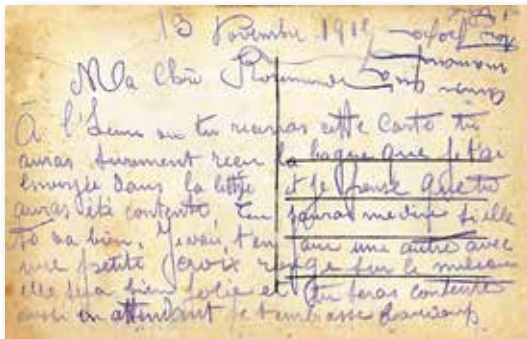 13 Novembre 1915
Ma Chère Rosemonde
À l'heure ou tu recevras cette Carte tu
auras surement recu la bague que je t'ai
envoyée dans la lettre et je pense que tu
auras été contente. tu sauras me dire si elle
te va bien. Je vais t'en faire une autre avec
une petite croix rouge sur le milieu
elle sera bien jolie et tu seras contente
aussi en attendant je t'embrasse Beaucoup
ainsi que
maman
Ton Papa